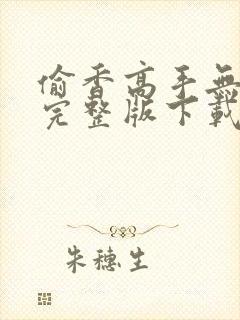 偷香高手無
完整版下載
朱穗生